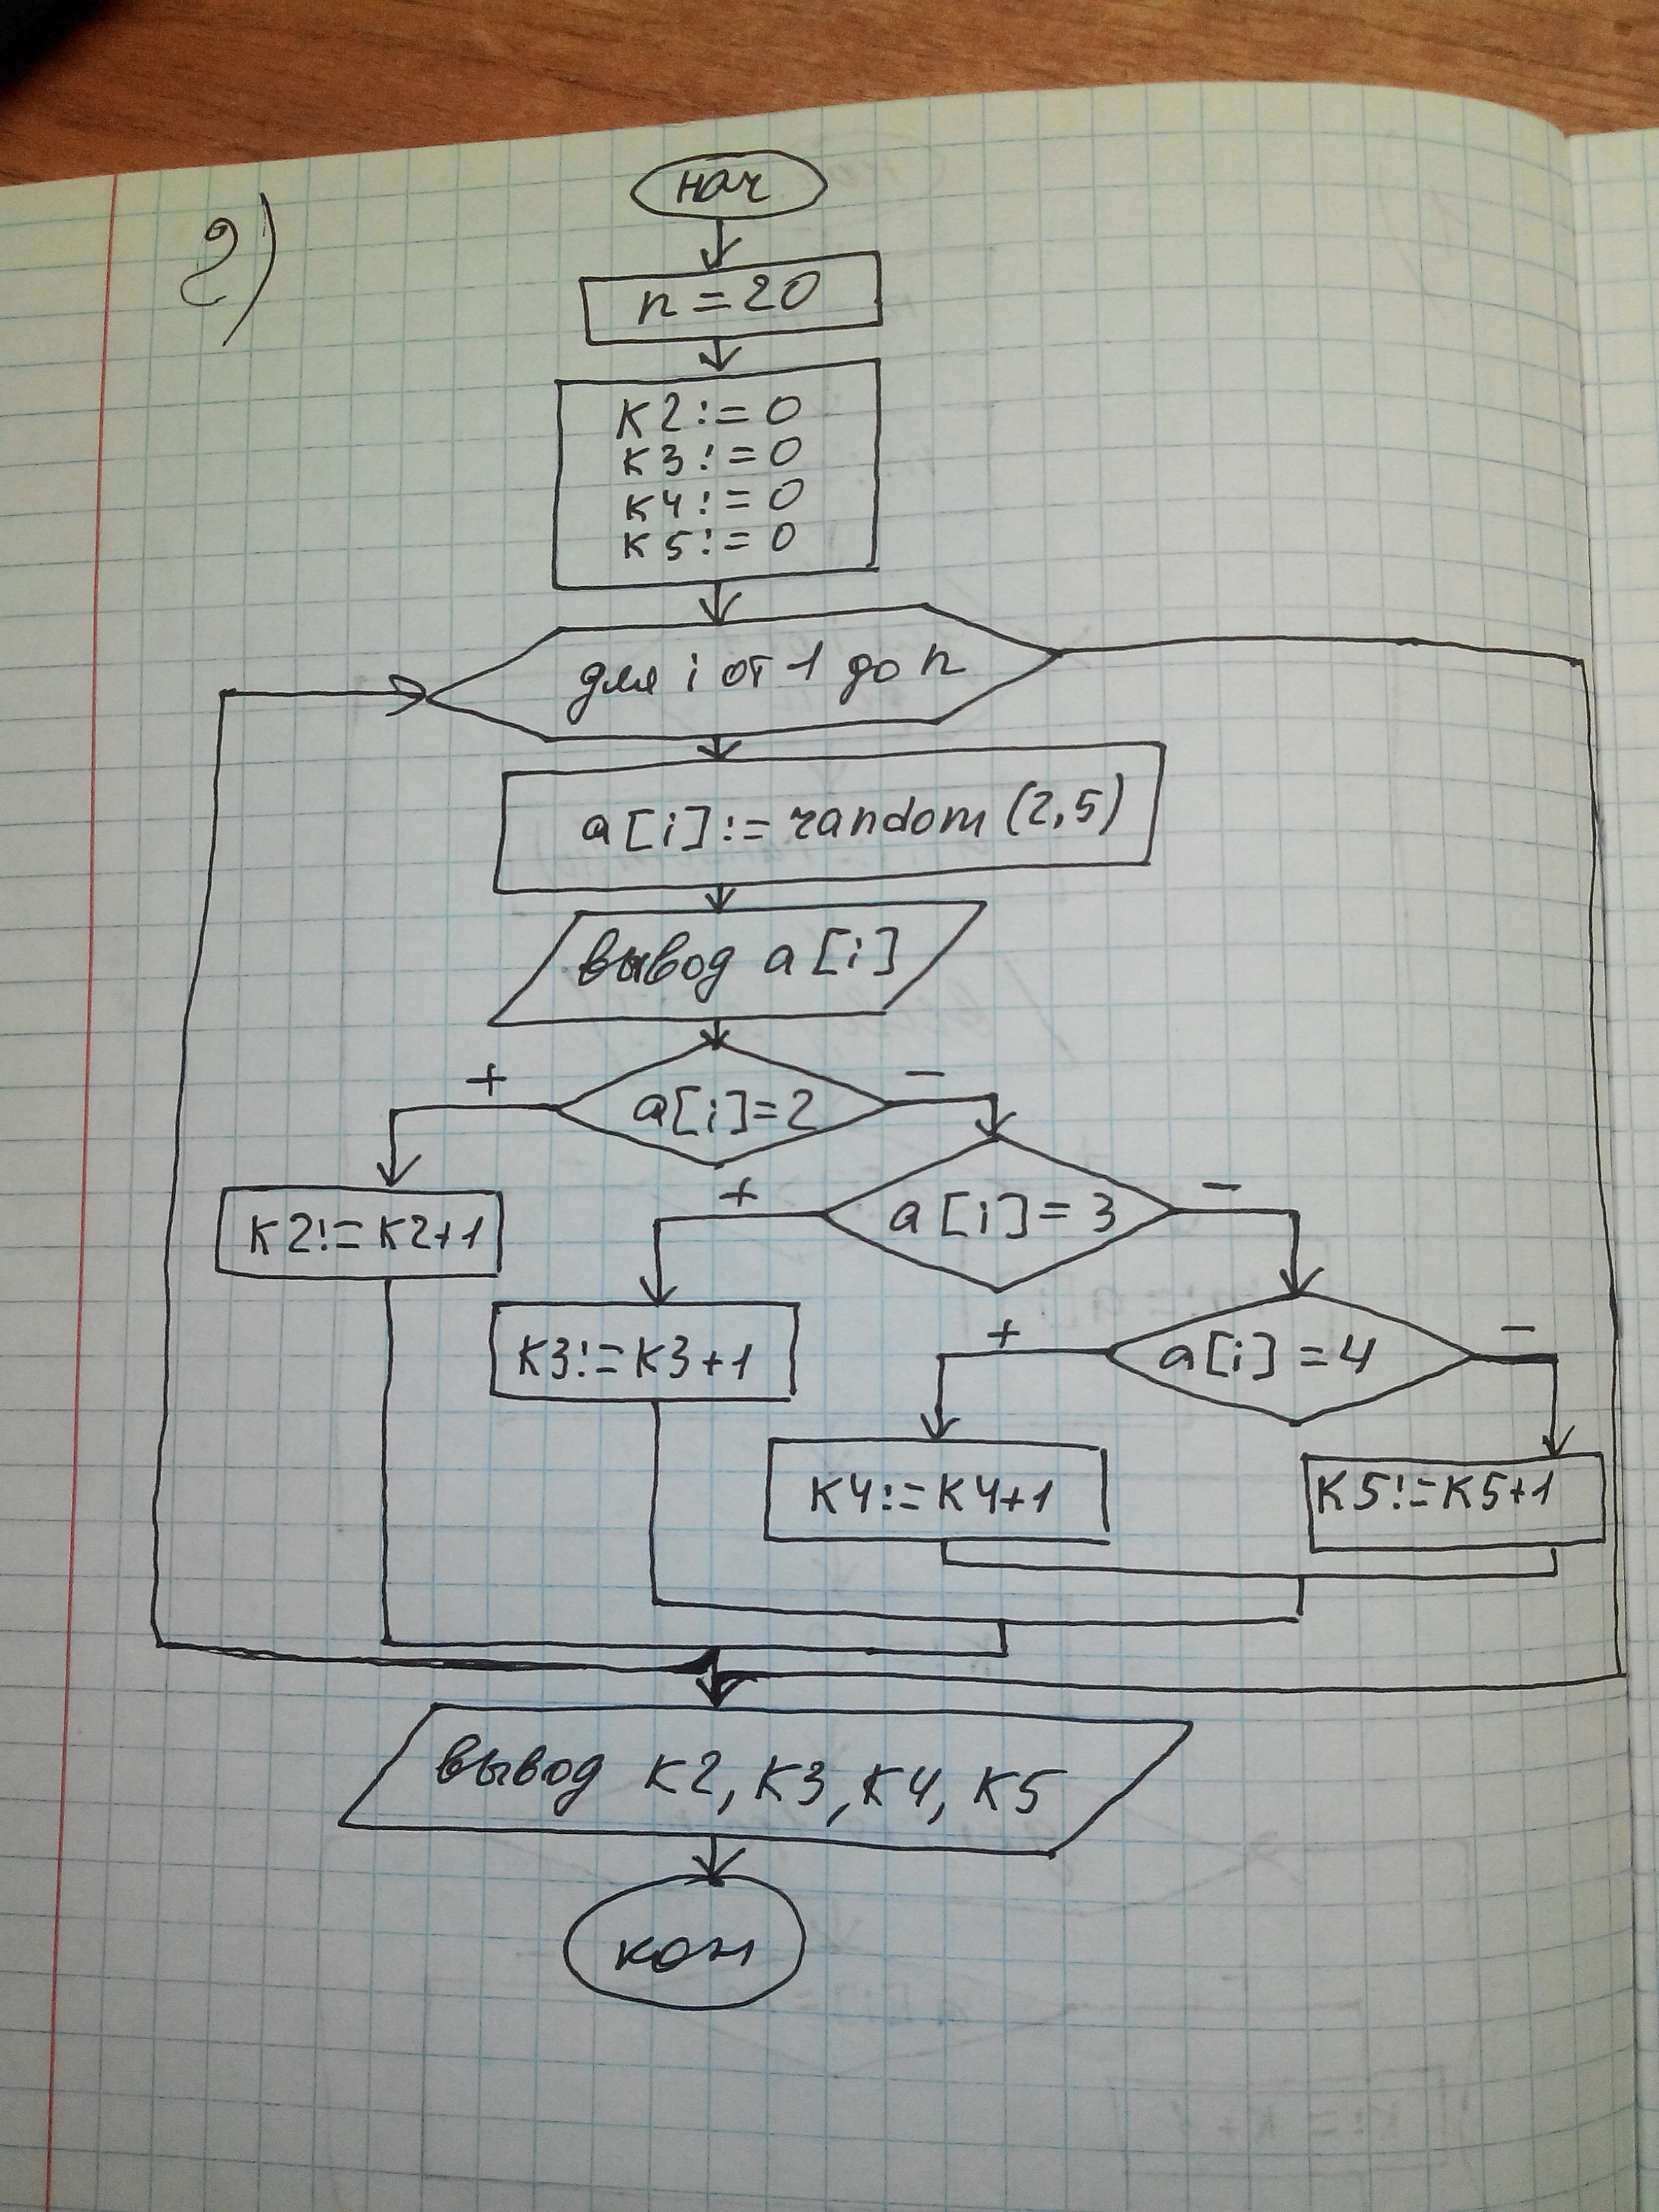 2)
нач
n = 20
K2:=0
K3:=0
K4:=0
K5:=0
для i от 1 до n
a[i]:=random(2,5)
вывод a[i]
+
a[i]=2
–
K2:=K2+1
+
a[i]=3
–
K3:=K3+1
+
a[i]=4
–
K4:=K4+1
K5:=K5+1
вывод K2, K3, K4, K5
кон